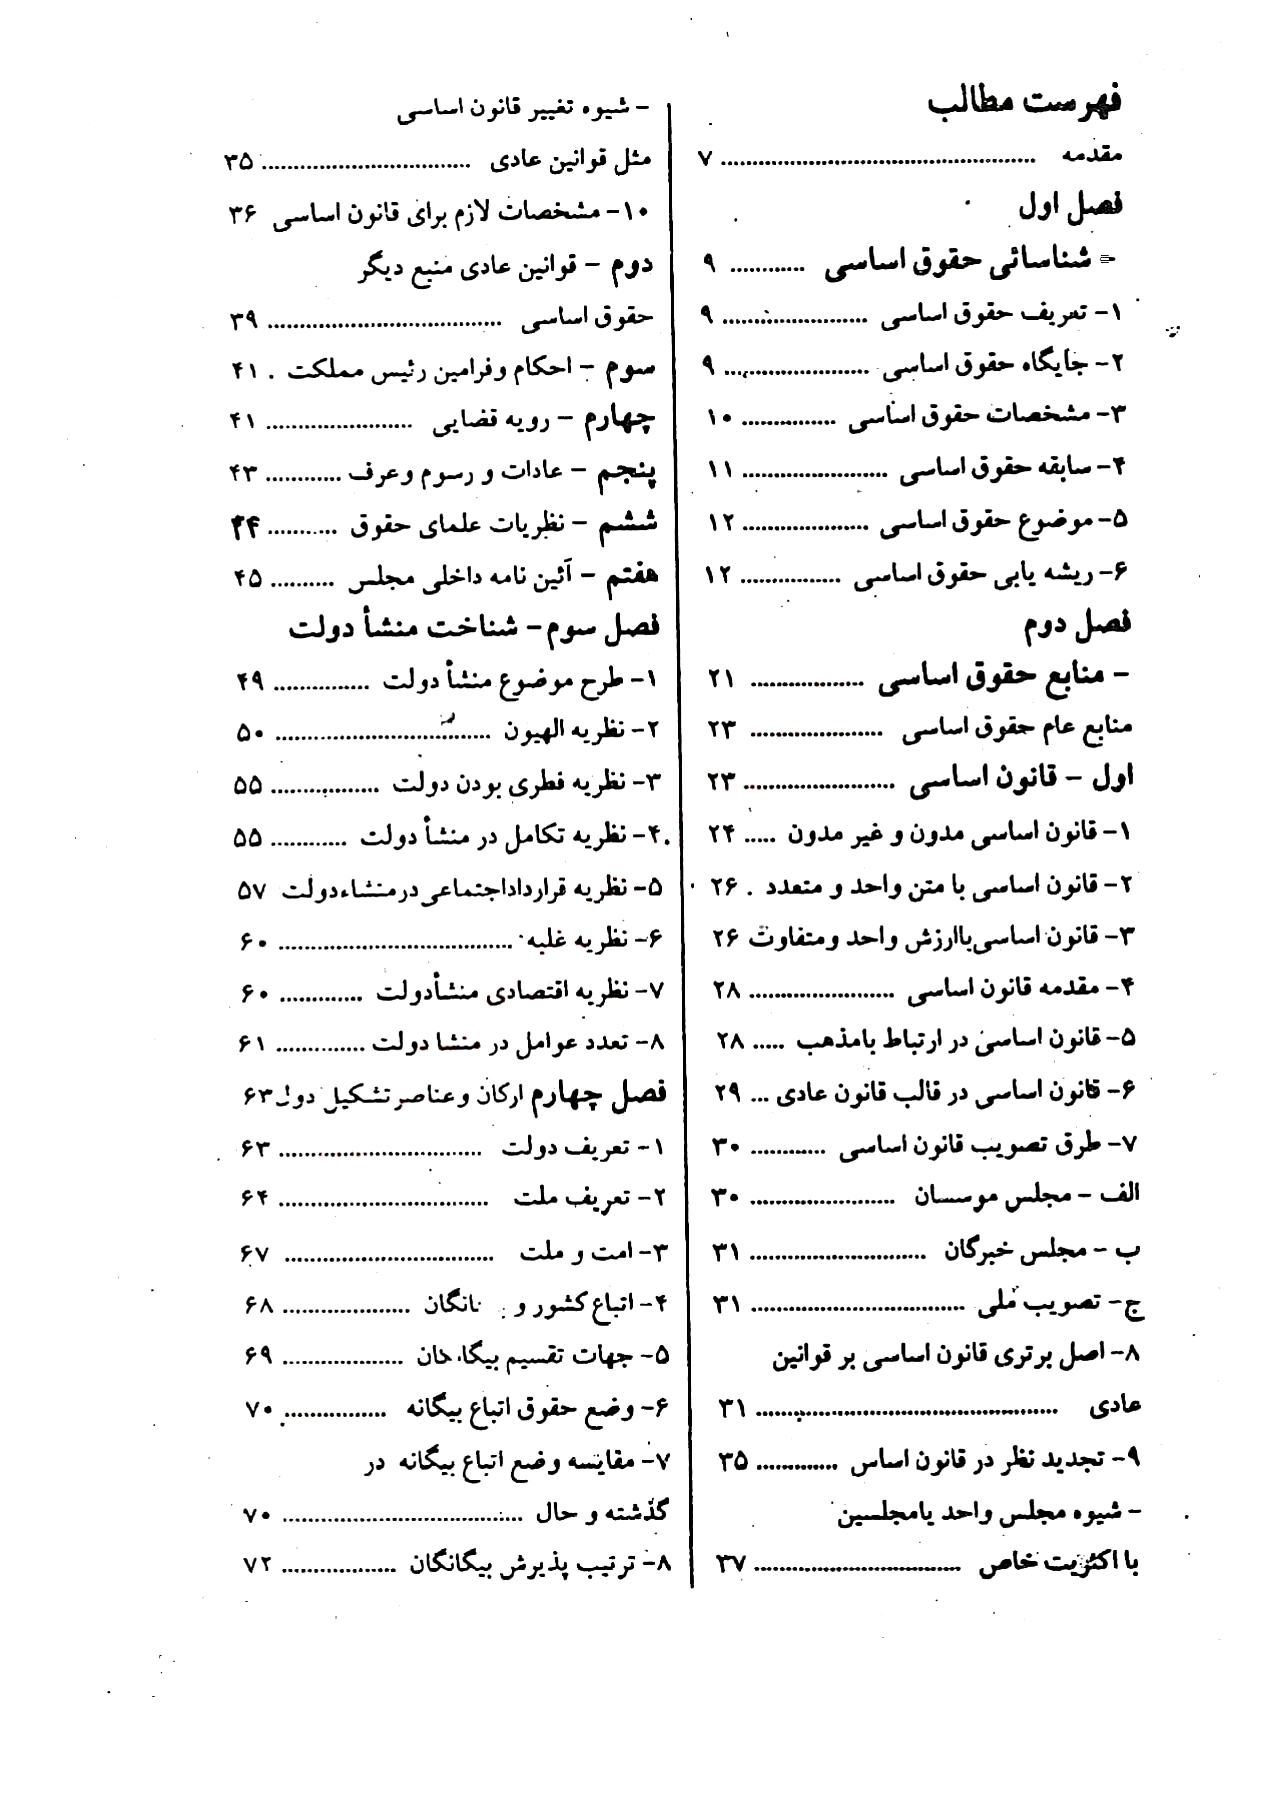 فهرست مطالب
مقدمه ................ ۷
فصل اول
- شناسائی حقوق اساسی ............ ۹
۱- تعریف حقوق اساسی ................ ۹
۲- جایگاه حقوق اساسی ................ ۹
۳- مشخصات حقوق اساسی ............... ۱۰
۴- سابقه حقوق اساسی ................ ۱۱
۵- موضوع حقوق اساسی ................ ۱۲
۶- ریشه یابی حقوق اساسی ................ ۱۲
فصل دوم
- منابع حقوق اساسی ................ ۲۱
منابع عام حقوق اساسی ................ ۲۳
اول - قانون اساسی ................ ۲۳
۱- قانون اساسی مدون و غیر مدون ..... ۲۴
۲- قانون اساسی با متن واحد و متعدد . ۲۶
۳- قانون اساسی باارزش واحد ومتفاوت ۲۶
۴- مقدمه قانون اساسی ................ ۲۸
۵- قانون اساسی در ارتباط بامذهب ..... ۲۸
۶- قانون اساسی در قالب قانون عادی ... ۲۹
۷- طرق تصویب قانون اساسی ............ ۳۰
الف - مجلس موسسان ................ ۳۰
ب - مجلس خبرگان ................ ۳۱
ج- تصویب ملی ................ ۳۱
۸- اصل برتری قانون اساسی بر قوانین
عادی ................ ۳۱
۹- تجدید نظر در قانون اساس ............. ۳۵
- شیوه مجلس واحد یامجلسین
با اکثریت خاص ................ ۳۷
- شیوه تغییر قانون اساسی
مثل قوانین عادی ................ ۳۵
۱۰- مشخصات لازم برای قانون اساسی ۳۶
دوم - قوانین عادی منبع دیگر
حقوق اساسی ................ ۳۹
سوم - احکام وفرامین رئیس مملکت . ۴۱
چهارم - رویه قضایی ................ ۴۱
پنجم - عادات و رسوم وعرف ............ ۴۳
ششم - نظریات علمای حقوق ........... ۴۴
هفتم - آئین نامه داخلی مجلس .......... ۴۵
فصل سوم- شناخت منشأ دولت
۱- طرح موضوع منشأ دولت ............... ۴۹
۲- نظریه الهیون ................ ۵۰
۳- نظریه فطری بودن دولت ................ ۵۵
۴- نظریه تکامل در منشأ دولت ............ ۵۵
۵- نظریه قرارداداجتماعی درمنشاءدولت ۵۷
۶- نظریه غلبه ................ ۶۰
۷- نظریه اقتصادی منشأدولت ............. ۶۰
۸- تعدد عوامل در منشا دولت .............. ۶۱
فصل چهارم ارکان وعناصرتشکیل دول ۶۳
۱- تعریف دولت ................ ۶۳
۲- تعریف ملت ................ ۶۴
۳- امت و ملت ................ ۶۷
۴- اتباع کشور و انگان ................ ۶۸
۵- جهات تقسیم ................ ۶۹
۶- وضع حقوق اتباع بیگانه ................ ۷۰
۷- مقایسه وضع اتباع بیگانه در
گذشته و حال ................ ۷۰
۸- ترتیب پذیرش بیگانگان ................ ۷۲